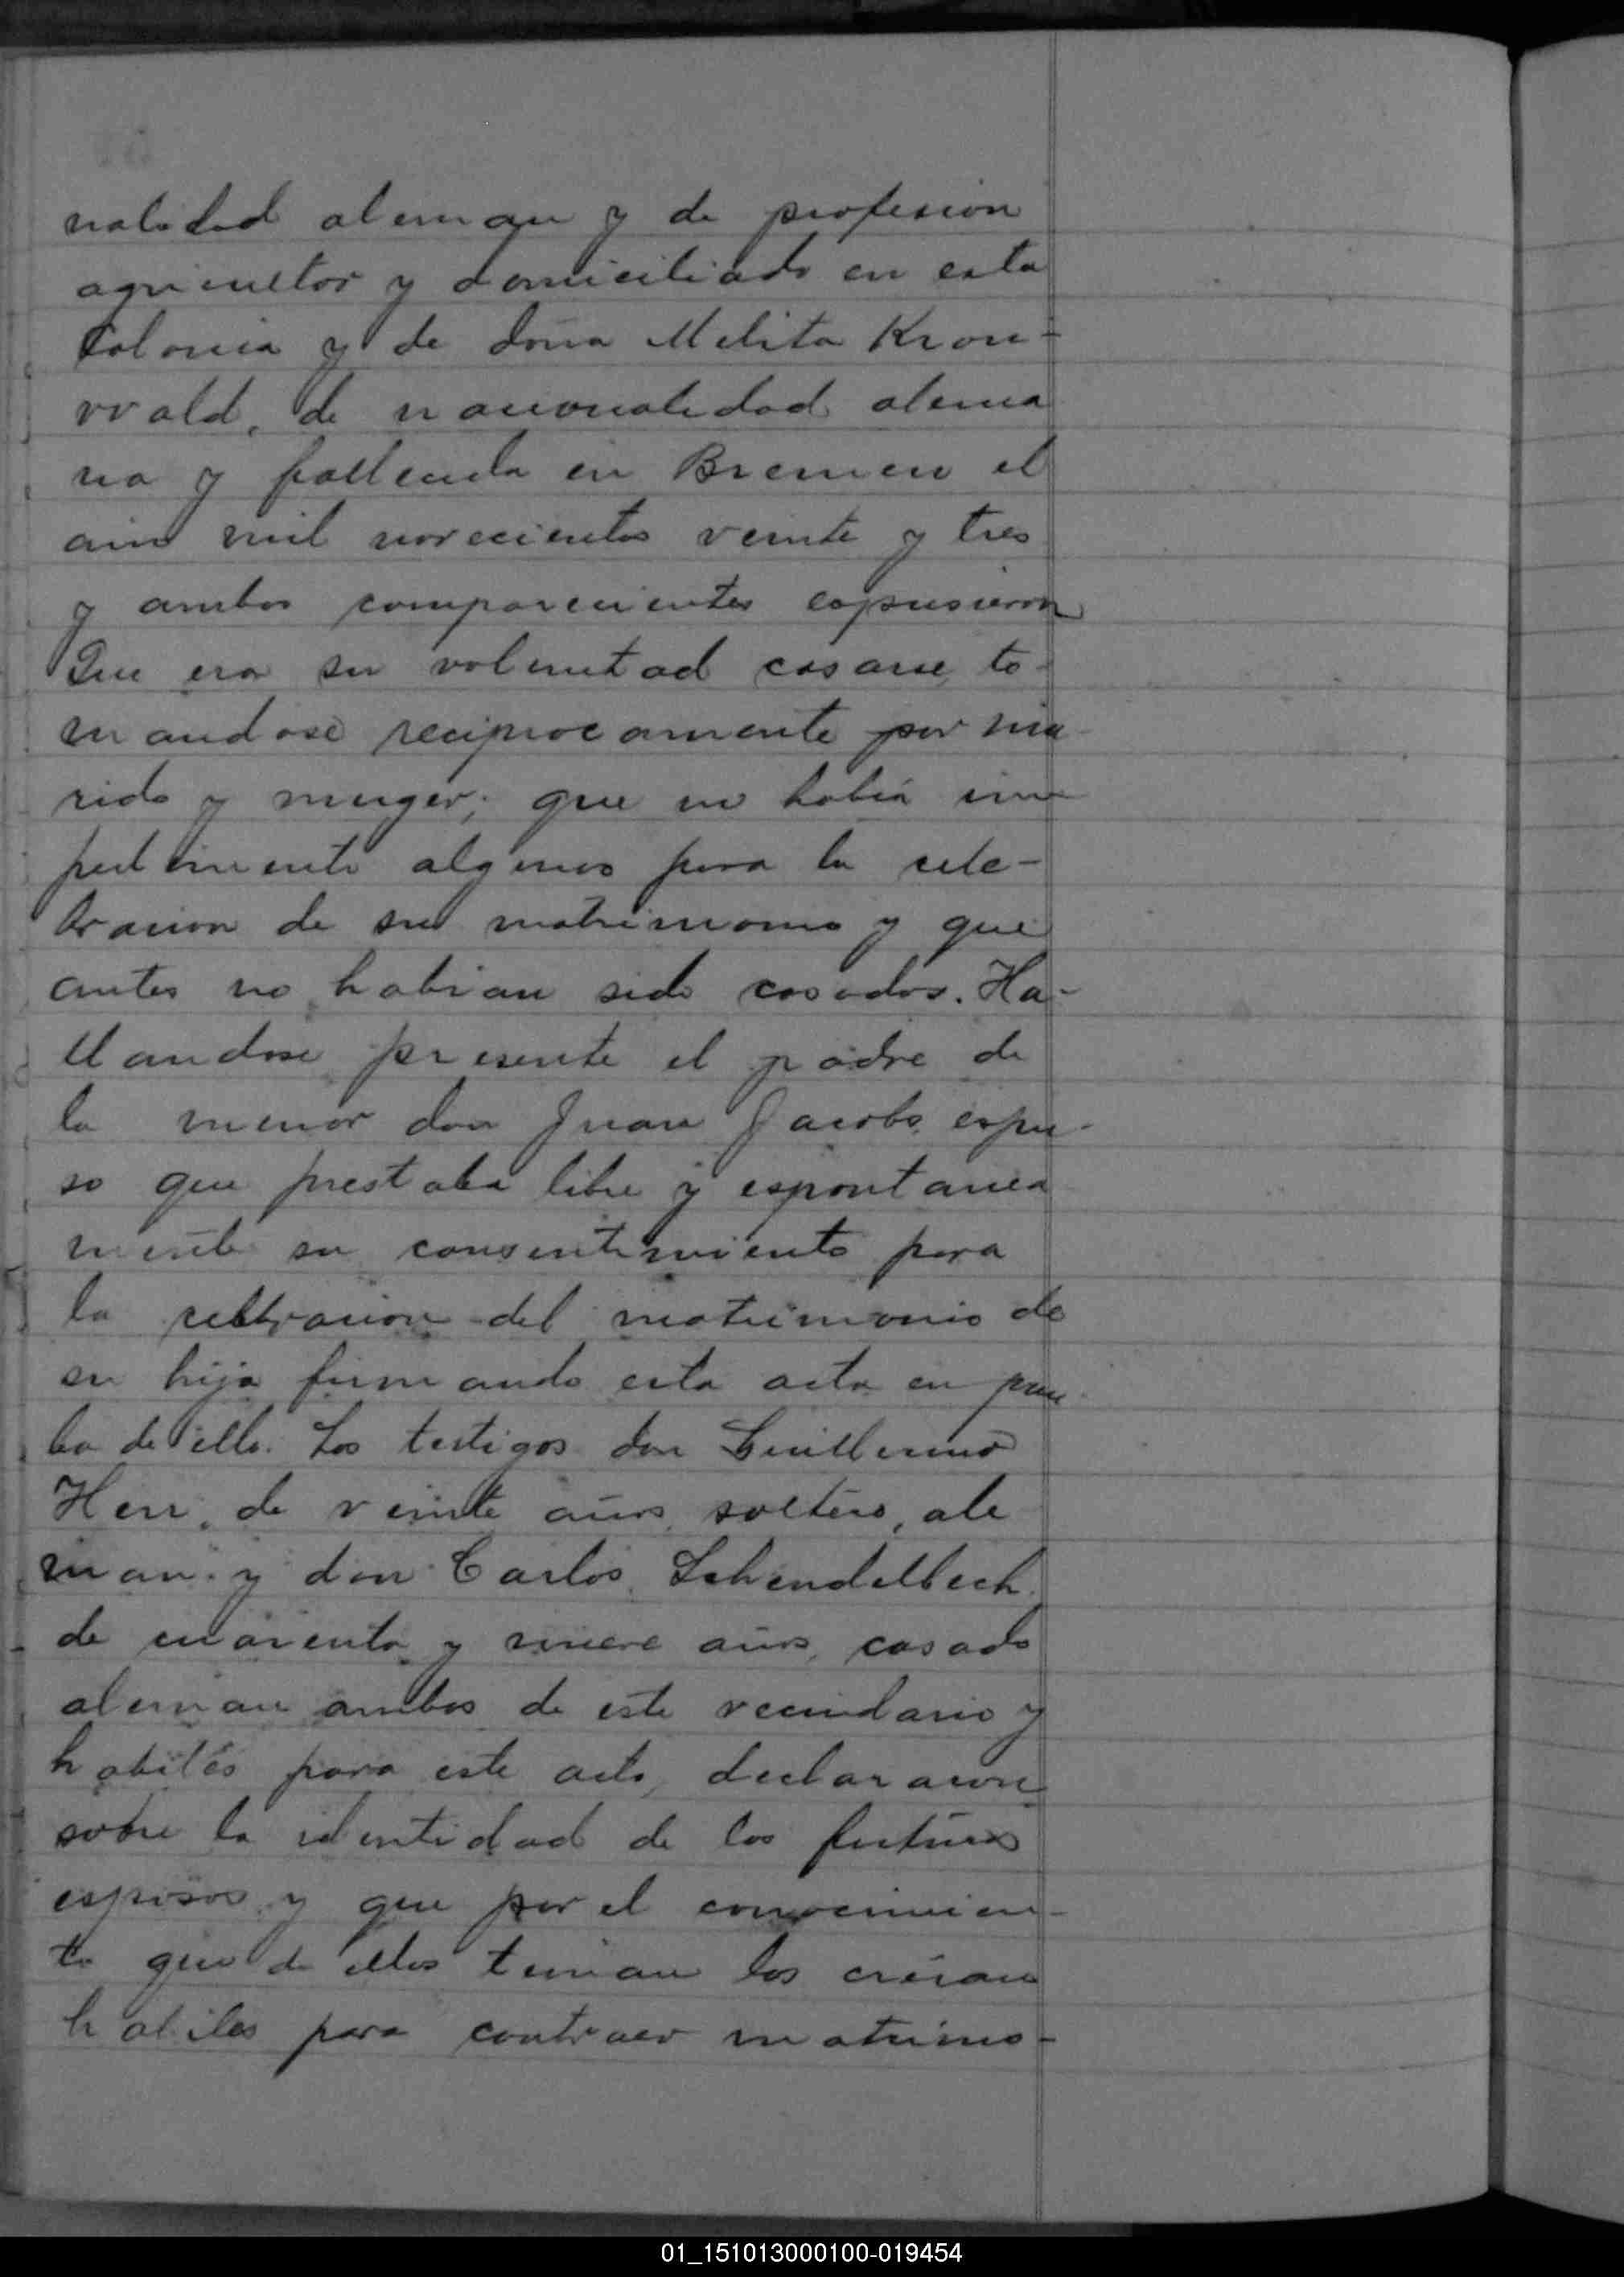 nalidad aleman y de profesion
agricultor y domiciliado en esta
Colonia y de doña Melita Kron-
wald, de nacionalidad alema
na y fallecida en Bremen el
año mil novecientos veinte y tres
y ambos comparecientes expusieron
Que era su voluntad casarse, to-
mandose reciprocamente por ma-
rido y muger; que no habia im
pedimento algunos para la cele-
bracion de su matrimonio y que
antes no habian sido casados. Ha-
llandose presente el padre de
la menor don Juan Jacobs, expu-
so que prestaba libre y espontanea
mente su consentimiento para
la celebracion del matrimonio de
su hija firmando esta acta en prue-
ba de ello. Los testigos don Guillermo
Herr, de veinte años, soltero, ale
man y don Carlos Schendelbeck
de cuarenta y nueve años, casado
aleman ambos de este vecindario y
habiles para este acto, declararon
sobre la identidad de los futuros
esposos y que por el conocimien-
to que de ellos tenian los creian
habiles para contraer matrimo-
01_151013000100-019454